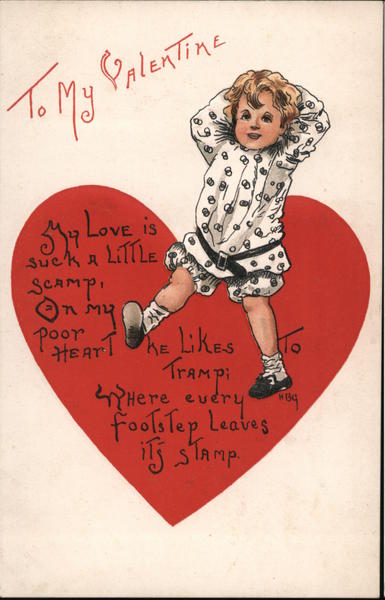 To My Valentine
My Love is
such a Little
scamp,
On my
poor
Heart he Likes To
Tramp;
Where every
footstep Leaves
its stamp.
HBG